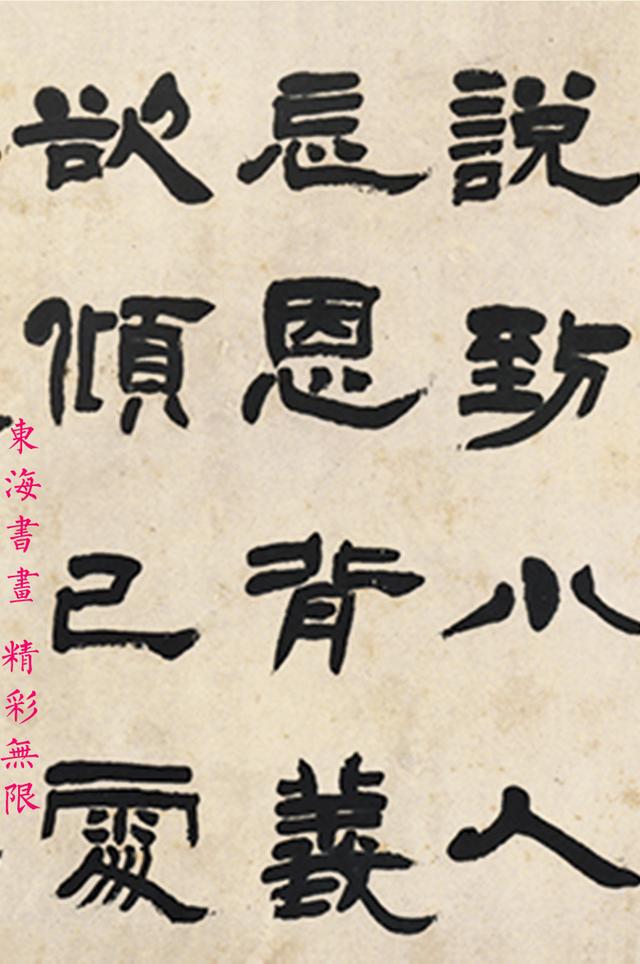 說到小人
忘恩背義
欲傾己處
東海書畫 精彩無限